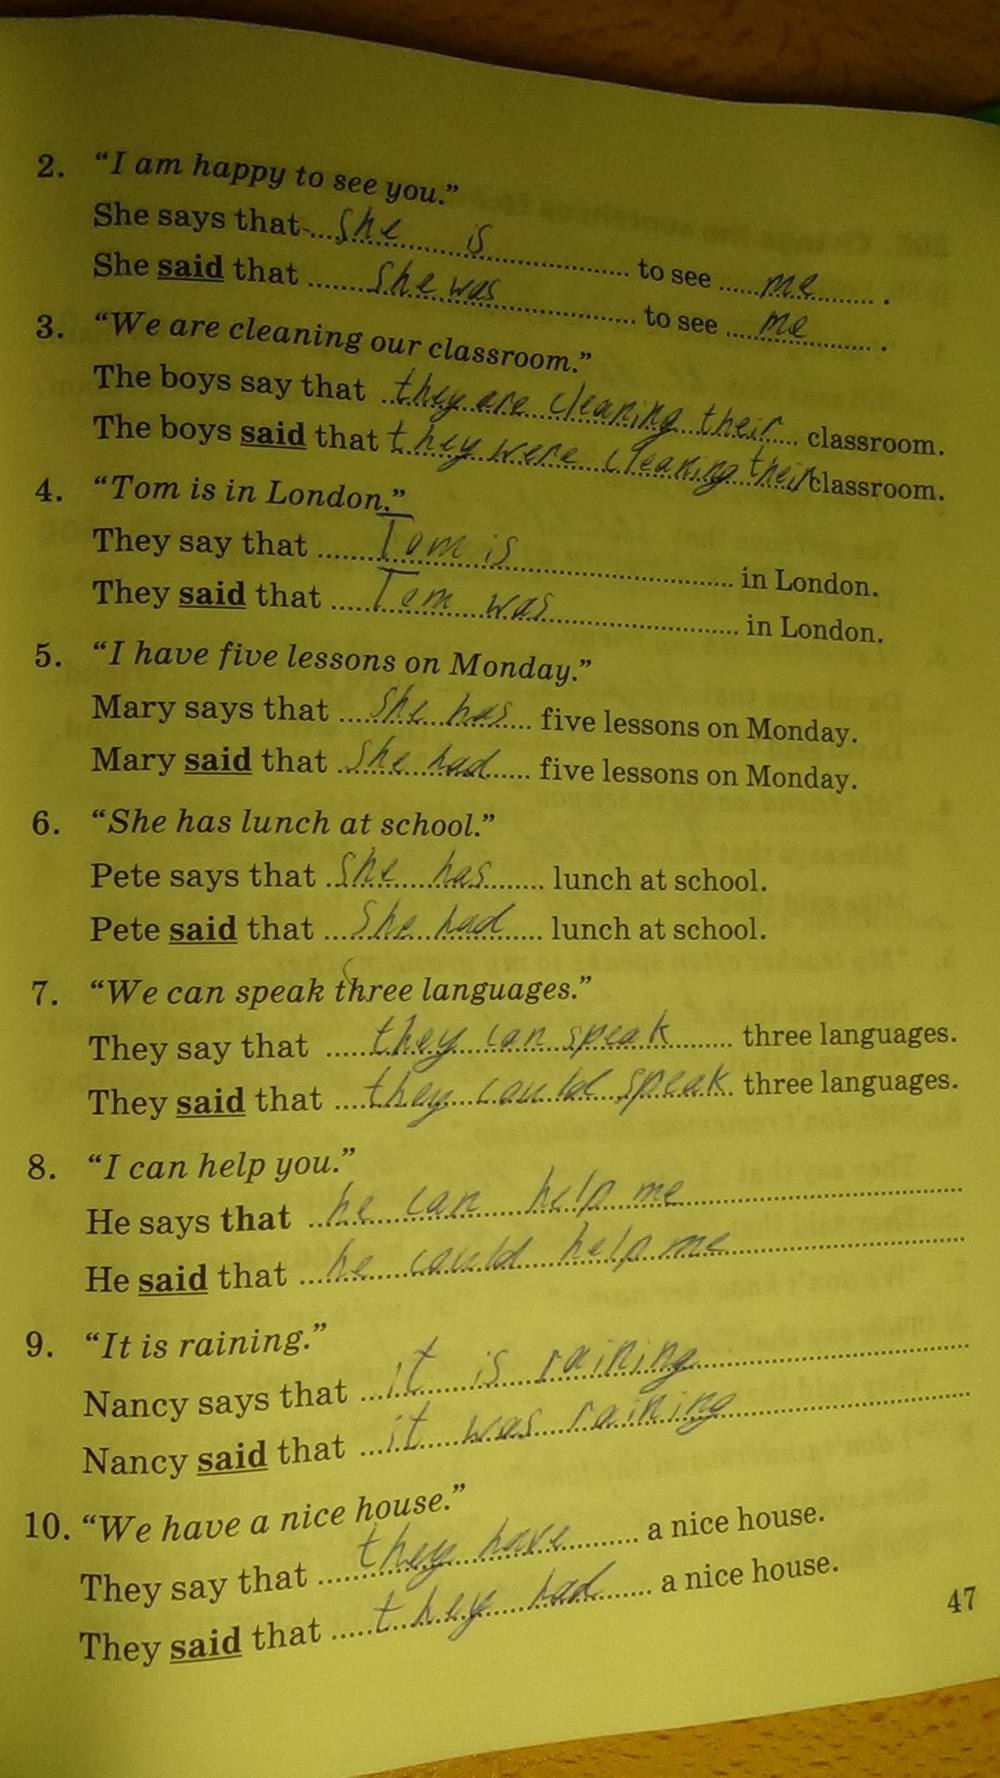 2. “I am happy to see you.”
She says that she is to see me.
She said that she was to see me.
3. “We are cleaning our classroom.”
The boys say that they are cleaning their classroom.
The boys said that they were cleaning their classroom.
4. “Tom is in London.”
They say that Tom is in London.
They said that Tom was in London.
5. “I have five lessons on Monday.”
Mary says that she has five lessons on Monday.
Mary said that she had five lessons on Monday.
6. “She has lunch at school.”
Pete says that she has lunch at school.
Pete said that she had lunch at school.
7. “We can speak three languages.”
They say that they can speak three languages.
They said that they could speak three languages.
8. “I can help you.”
He says that he can help me
He said that he could help me
9. “It is raining.”
Nancy says that it is raining
Nancy said that it was raining
10. “We have a nice house.”
They say that they have a nice house.
They said that they had a nice house.
47